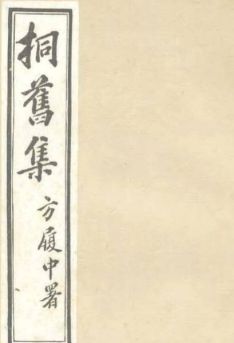 桐舊集
方履中署